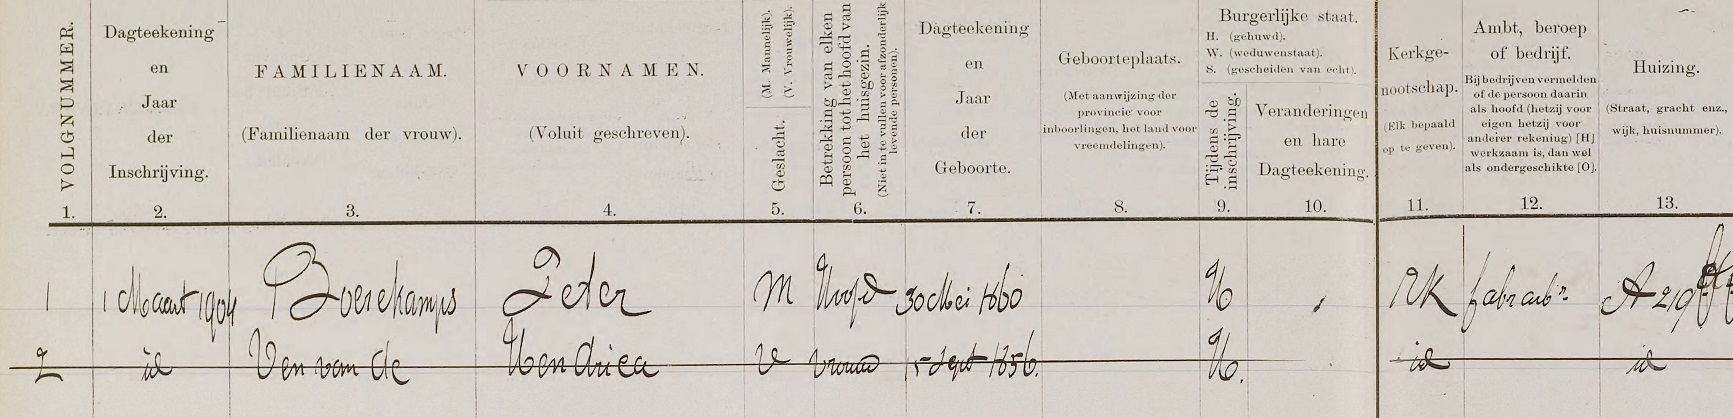 VOLGNUMMER.
1.
Dagteekening
en
Jaar
der
Inschrijving.
2.
FAMILIENAAM.
(Familienaam der vrouw).
3.
VOORNAMEN.
(Voluit geschreven).
4.
Geslacht. (M. Mannelijk). (V. Vrouwelijk).
5.
Betrekking van elken
persoon tot het hoofd van
het huisgezin.
(Niet in te vullen voor afzonderlijk
levende personen).
6.
Dagteekening
en
Jaar
der
Geboorte.
7.
Geboorteplaats.
(Met aanwijzing der
provincie voor
inboorlingen, het land voor
vreemdelingen).
8.
Burgerlijke staat.
H. (gehuwd).
W. (weduwenstaat).
S. (gescheiden van echt).
Tijdens de
inschrijving.
9.
Veranderingen
en hare
Dagteekening.
10.
Kerkge-
nootschap.
(Elk bepaald
op te geven).
11.
Ambt, beroep
of bedrijf.
Bij bedrijven vermelden
of de persoon daarin
als hoofd (hetzij voor
eigen hetzij voor
anderer rekening) [H]
werkzaam is, dan wel
als ondergeschikte [O].
12.
Huizing.
(Straat, gracht enz.,
wijk, huisnummer).
13.
1 1 Maart 1904 Boerekamps Peter M Hoofd 30 Mei 1860 H RK fabr arbr A 219
2 id Ven van de Hendrica V vrouw 15 Sept 1856. H. id id